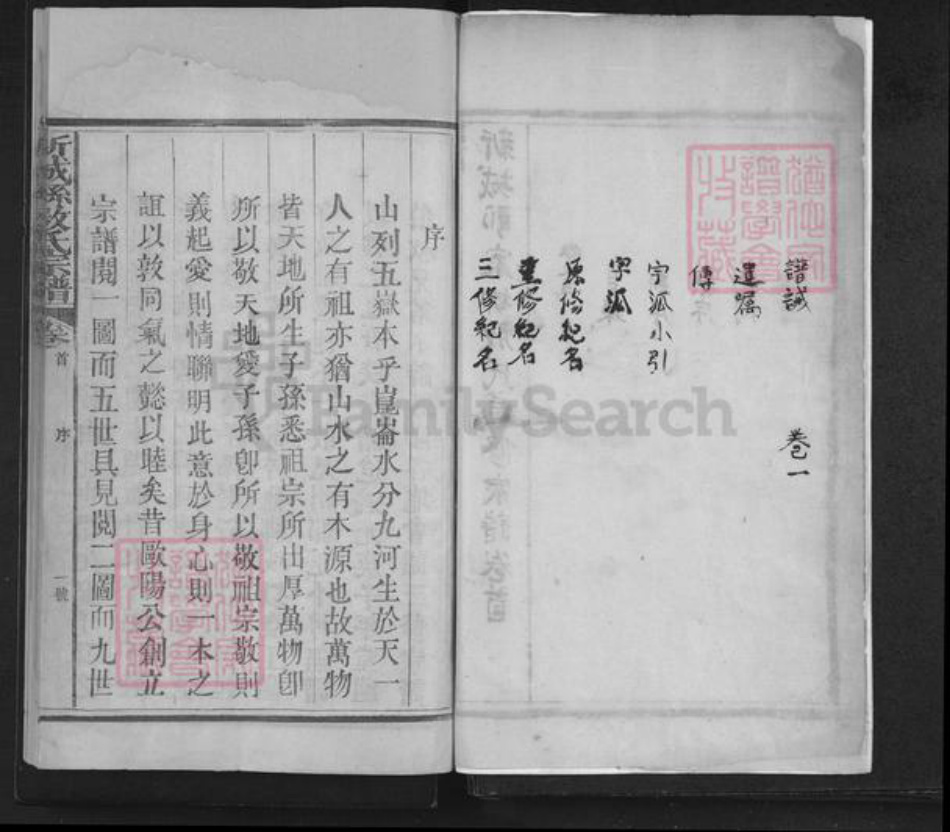 譜誡 卷一
遺嘱
傳
字派小引
字派
原修紀名
重修紀名
三修紀名
序
山列五嶽本乎崑崙水分九河生於天一
人之有祖亦猶山水之有木源也故萬物
皆天地所生子孫悉祖宗所出厚萬物卽
所以敬天地愛子孫卽所以敬祖宗敬則
義起愛則情聯明此意於身心則一本之
誼以敦同氣之懿以睦矣昔歐陽公創立
宗譜閱一圖而五世具見閱二圖而九世
氏宗譜 卷首 序 一號
FamilySearch